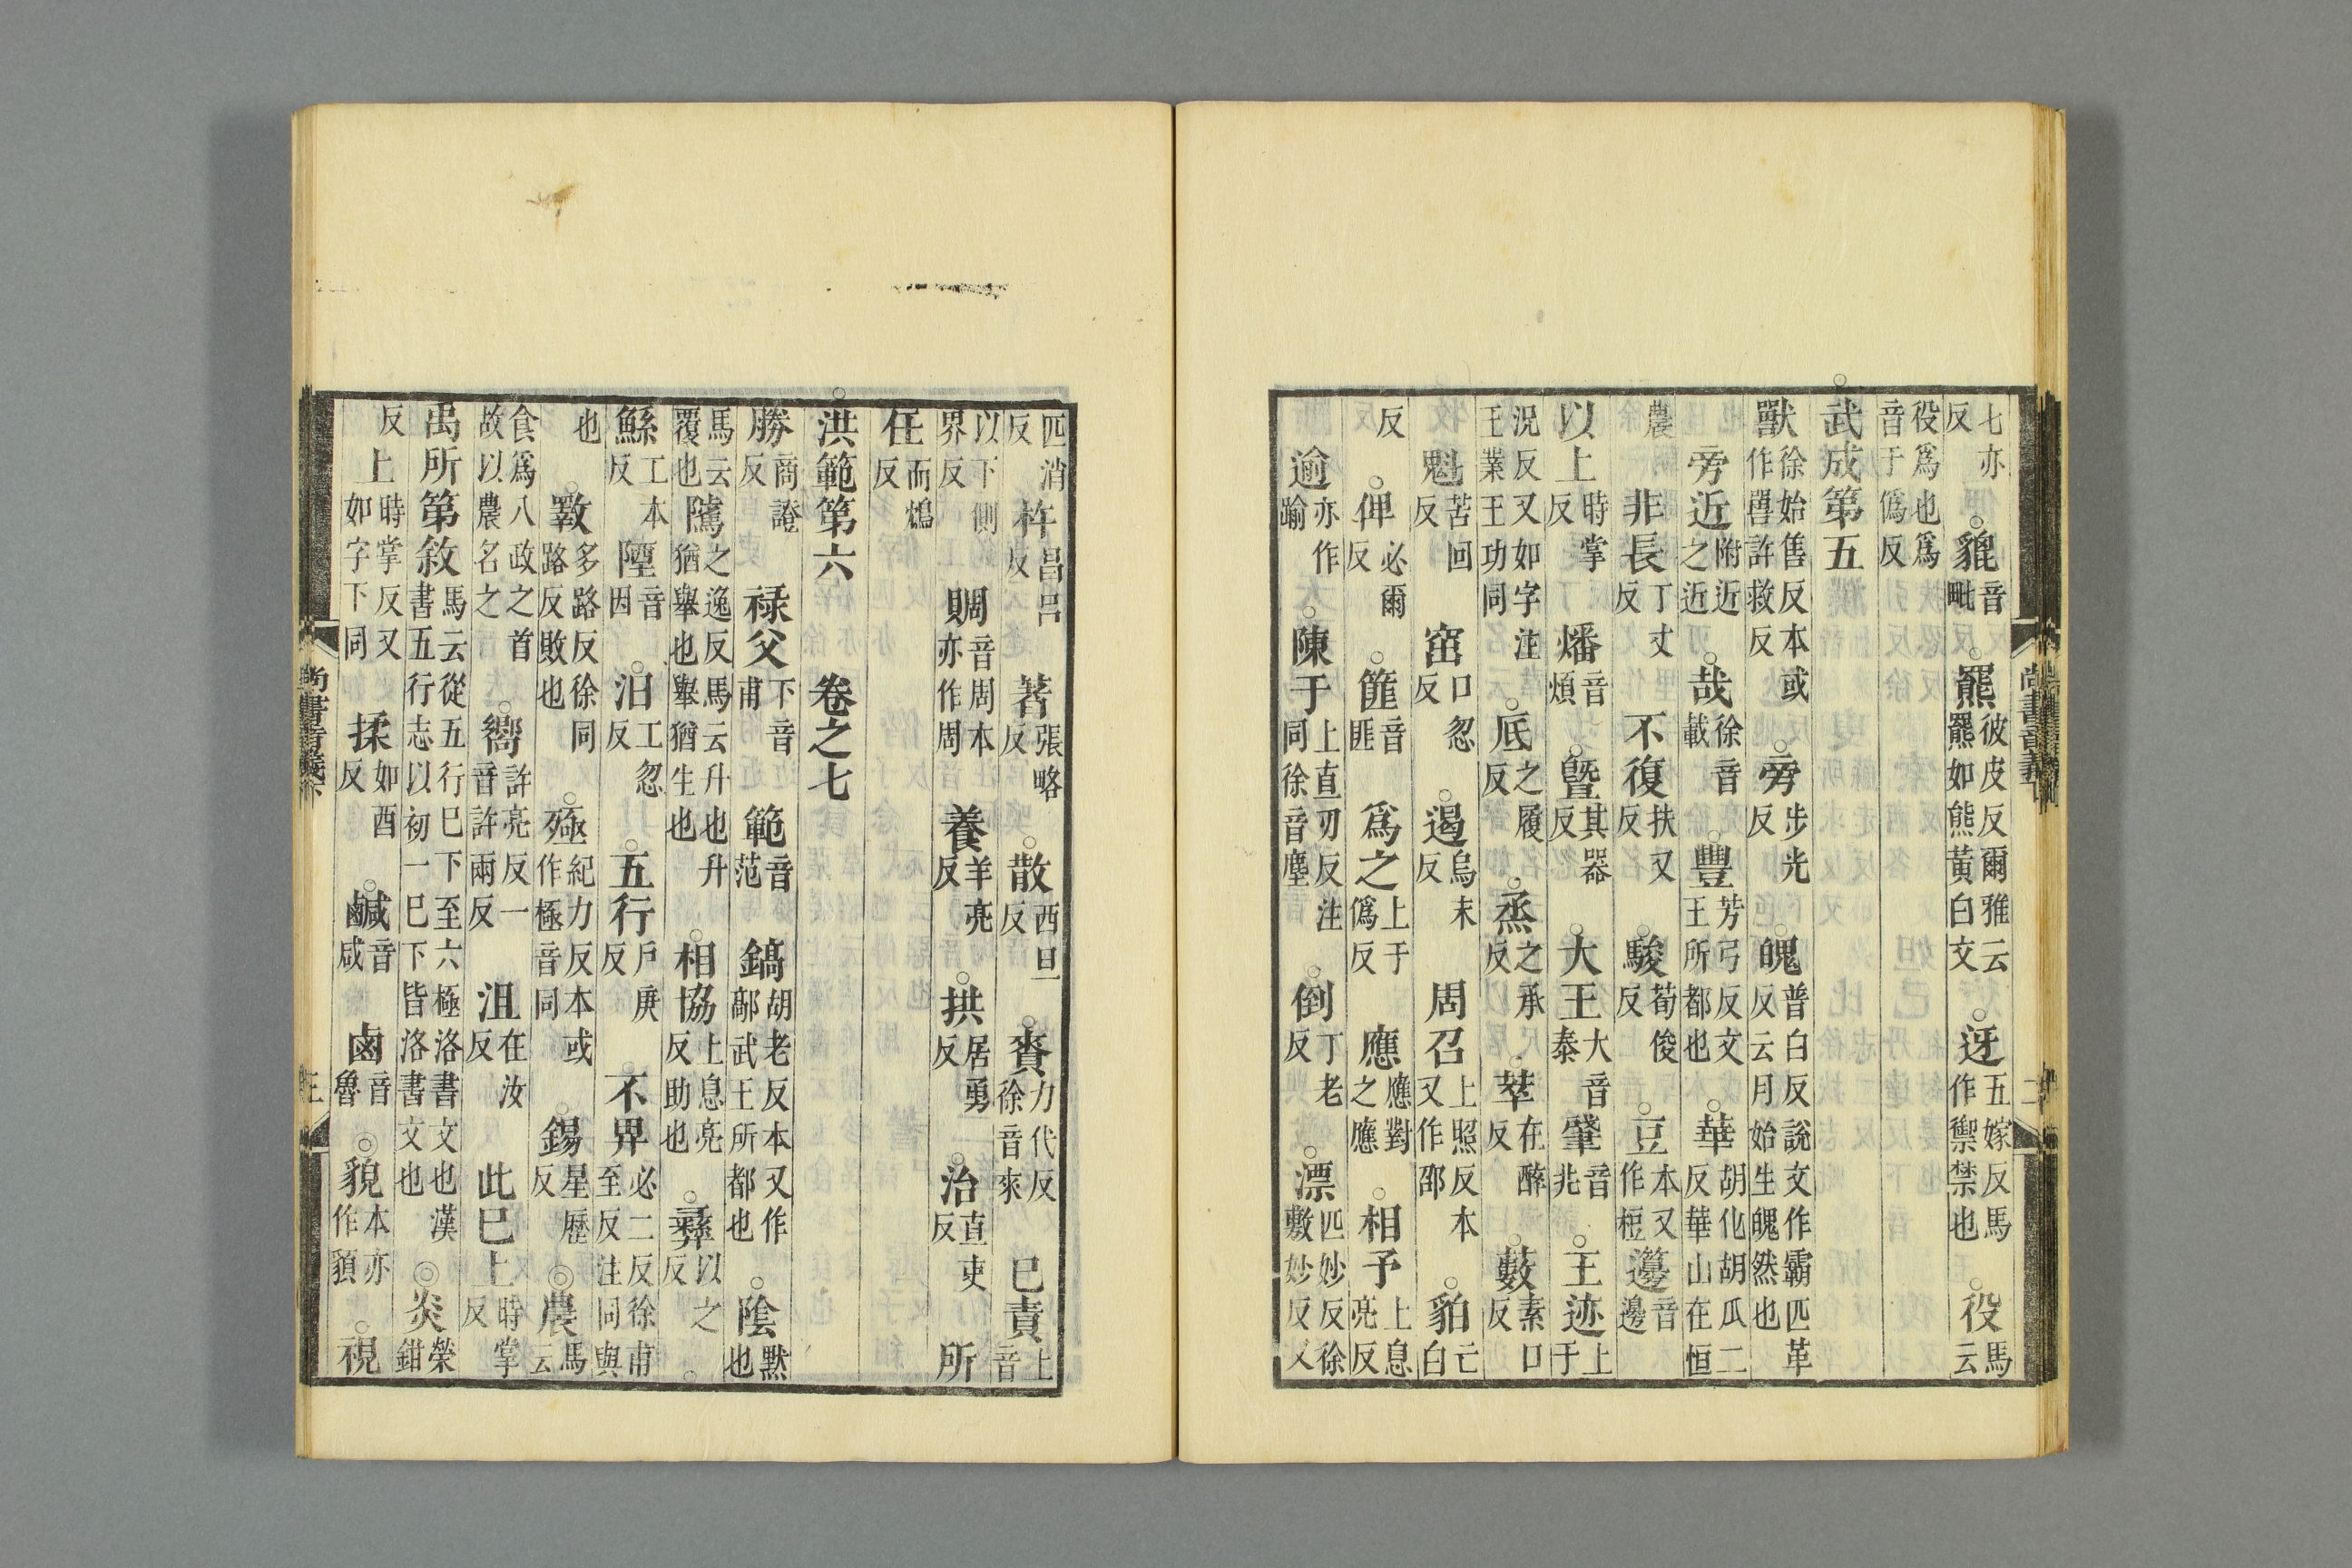 七亦反 貔音毗 羆彼皮反爾雅云羆如熊黃白文 迓五嫁反馬作禦禁也 役馬云
役爲也爲音于僞反
武成第五
獸徐始售反本或作嘼許救反 旁步光反 魄普白反說文作霸匹革反云月始生魄然也
旁近附近之近 哉徐音載 豐芳弓反文王所都也 華胡化胡瓜二反華山在恒
農 非長丁丈反 不復扶又反 駿荀俊反 豆本又作梪 籩音邊
以上時掌反 燔音煩 曁其器反 大王大音泰 肇音兆 王迹上于
況反又如字注王業王功同 厎之履反 烝之承反 萃在醉反 藪素口反
魁苦回反 窋口忽反 遏烏末反 周召上照反本又作邵 貊亡白
反 俾必爾反 篚音匪 爲之上于僞反 應應對之應 相予上息亮反
逾亦作踰 陳于上直刃反注同徐音塵 倒丁老反 漂匹妙反徐敷妙反又
匹消反 杵昌呂反 著張略反 散西旦反 賚力代反徐音來 已責上音
以下側界反 賙音周本亦作周 養羊亮反 拱居勇反 治直吏反 所
任而鴆反
洪範第六 卷之七
勝商證反 祿父下音甫 範音范 鎬胡老反本又作鄗武王所都也 陰默也
馬云覆也 隲之逸反馬云升也升猶舉也舉猶生也 相協上息亮反助也 彞以之反
鯀工本反 陻音因 汩工忽反 五行戶庚反 不畀必二反徐甫至反注同與
也 斁多路反徐同路反敗也 殛紀力反本或作極音同 錫星歷反 農馬云
食爲八政之首故以農名之 嚮許亮反一音許兩反 沮在汝反 此已上時掌反
禹所第敘馬云從五行已下至六極洛書文也漢書五行志以初一已下皆洛書文也 炎榮鉗
反 上時掌反又如字下同 揉如酉反 鹹音咸 鹵音魯 貌本亦作䫉 視